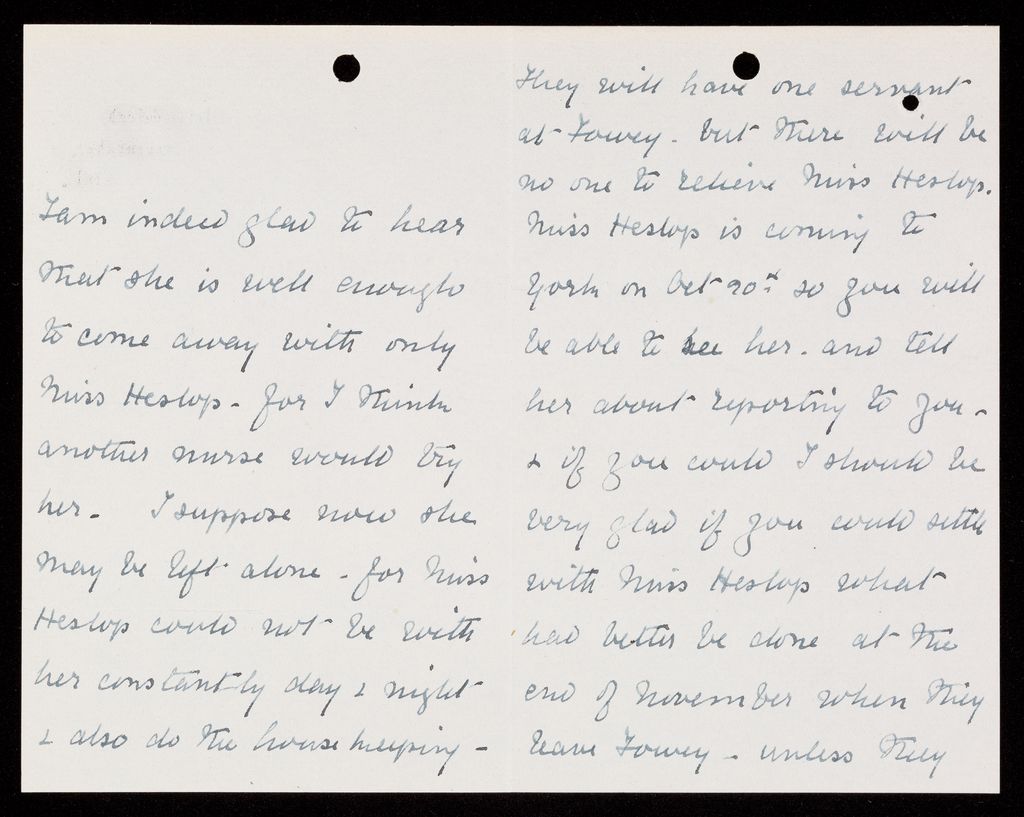 I am indeed glad to hear
that she is well enough
to come away with only
Miss Heslop - for I think
another nurse would try
her - I suppose now she
may be left alone - for Miss
Heslop could not be with
her constantly day & night
& also do the housekeeping -
They will have one servant
at Fowey - but there will be
no one to relieve Miss Heslop.
Miss Heslop is coming to
York on Oct 20th so you will
be able to see her - and tell
her about reporting to you -
& if you could I should be
very glad if you could settle
with Miss Heslop what
had better be done at the
end of November when they
leave Fowey - unless they